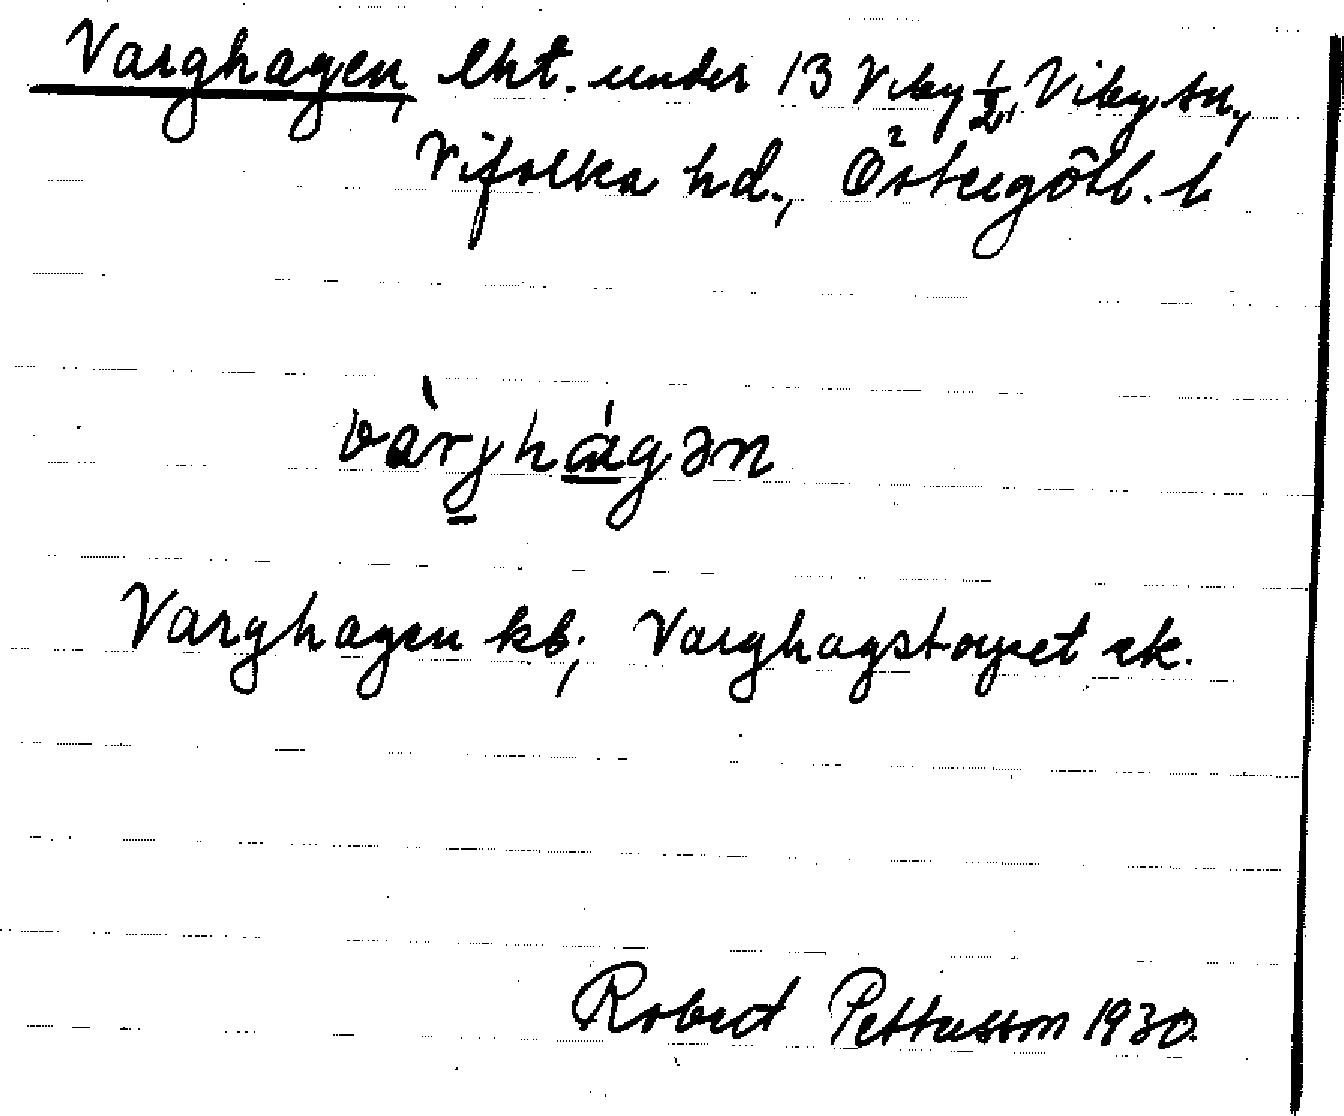 Varghagen, lht. under 13 Viby 1/2, Viby sn,
Vifolka hd., Östergötl. l
2
vàrjhágən
Varghagen kb; Varghagstorpet ek.
Robert Pettersson 1930.